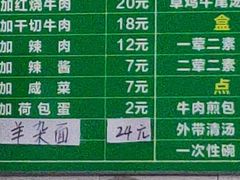 加红烧牛肉 20元
加干切牛肉 18元
加辣肉 12元
加辣酱 7元
加咸菜 7元
加荷包蛋 2元
羊杂面 24元
盒
一荤二素
二荤二素
点
牛肉煎包
外带清汤
一次性碗